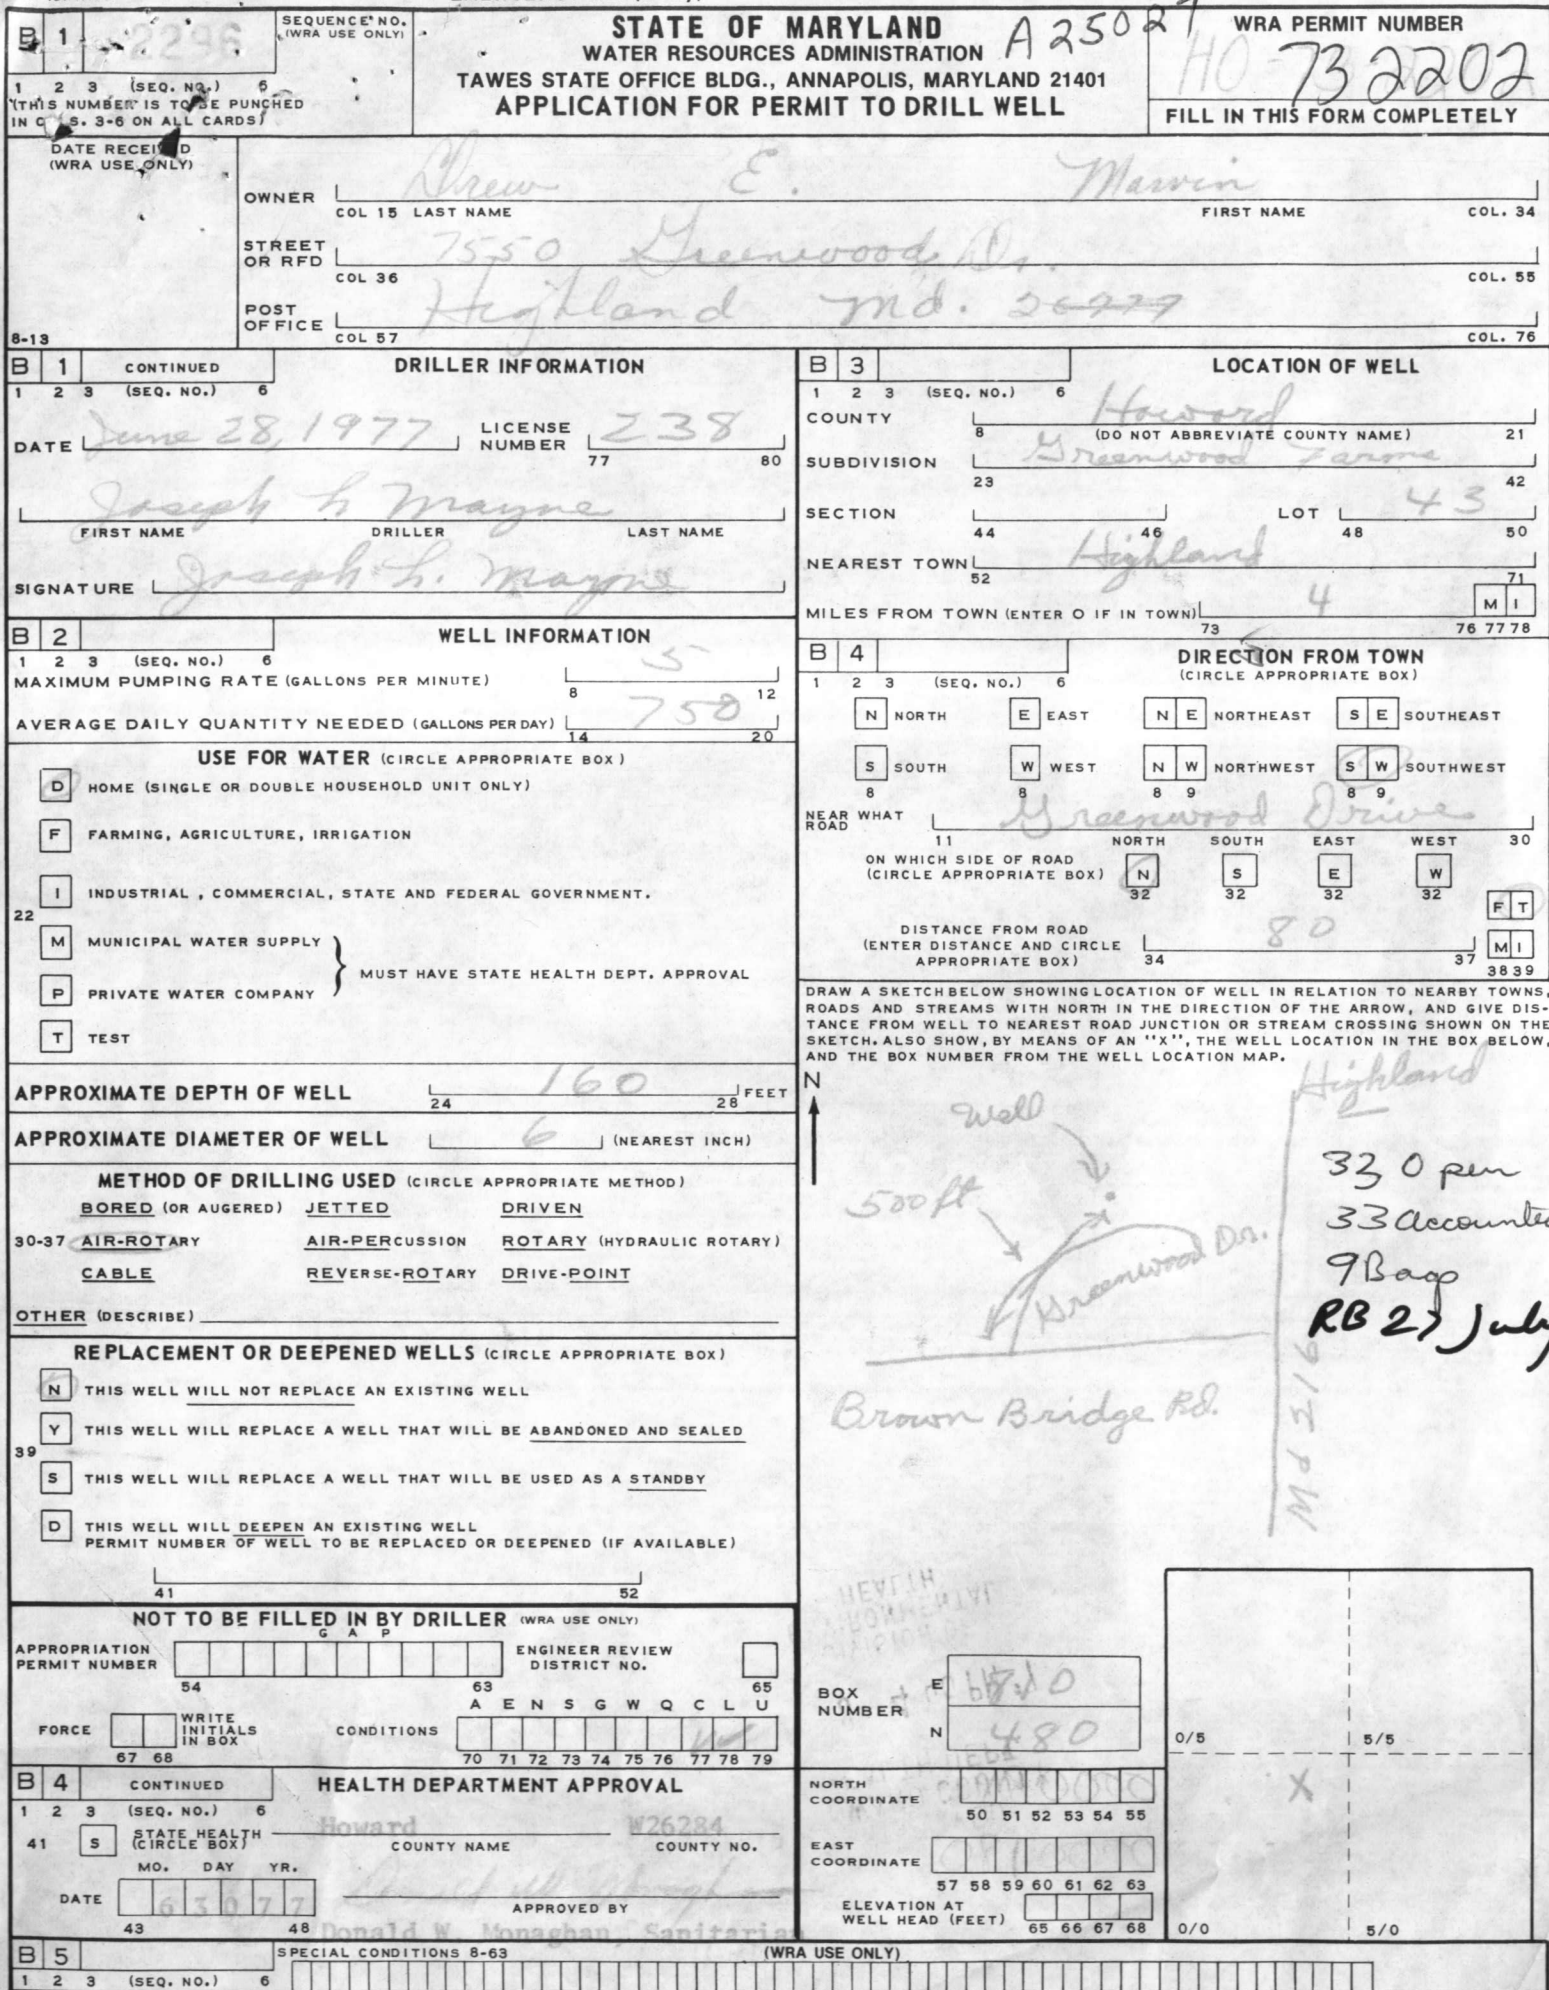 B 1 2296
SEQUENCE NO.
(WRA USE ONLY)
1 2 3 (SEQ. NO.) 6
(THIS NUMBER IS TO BE PUNCHED
IN COLS. 3-6 ON ALL CARDS)
STATE OF MARYLAND
WATER RESOURCES ADMINISTRATION
TAWES STATE OFFICE BLDG., ANNAPOLIS, MARYLAND 21401
APPLICATION FOR PERMIT TO DRILL WELL
A25027
WRA PERMIT NUMBER
HO-732202
FILL IN THIS FORM COMPLETELY
DATE RECEIVED
(WRA USE ONLY)
8-13
OWNER Drew E. Marvin
COL 15 LAST NAME FIRST NAME COL. 34
STREET OR RFD 7550 Greenwood Dr.
COL 36 COL. 55
POST OFFICE Highland Md. 20777
COL 57 COL. 76
B 1 CONTINUED DRILLER INFORMATION
1 2 3 (SEQ. NO.) 6
DATE June 28, 1977 LICENSE NUMBER 238
77 80
Joseph L Mayne
FIRST NAME DRILLER LAST NAME
SIGNATURE Joseph L. Mayne
B 2 WELL INFORMATION
1 2 3 (SEQ. NO.) 6
MAXIMUM PUMPING RATE (GALLONS PER MINUTE) 5
8 12
AVERAGE DAILY QUANTITY NEEDED (GALLONS PER DAY) 750
14 20
USE FOR WATER (CIRCLE APPROPRIATE BOX)
D HOME (SINGLE OR DOUBLE HOUSEHOLD UNIT ONLY)
F FARMING, AGRICULTURE, IRRIGATION
I INDUSTRIAL, COMMERCIAL, STATE AND FEDERAL GOVERNMENT.
22
M MUNICIPAL WATER SUPPLY
MUST HAVE STATE HEALTH DEPT. APPROVAL
P PRIVATE WATER COMPANY
T TEST
APPROXIMATE DEPTH OF WELL 160 FEET
24 28
APPROXIMATE DIAMETER OF WELL 6 (NEAREST INCH)
METHOD OF DRILLING USED (CIRCLE APPROPRIATE METHOD)
BORED (OR AUGERED) JETTED DRIVEN
30-37 AIR-ROTARY AIR-PERCUSSION ROTARY (HYDRAULIC ROTARY)
CABLE REVERSE-ROTARY DRIVE-POINT
OTHER (DESCRIBE)
REPLACEMENT OR DEEPENED WELLS (CIRCLE APPROPRIATE BOX)
N THIS WELL WILL NOT REPLACE AN EXISTING WELL
Y THIS WELL WILL REPLACE A WELL THAT WILL BE ABANDONED AND SEALED
39
S THIS WELL WILL REPLACE A WELL THAT WILL BE USED AS A STANDBY
D THIS WELL WILL DEEPEN AN EXISTING WELL
PERMIT NUMBER OF WELL TO BE REPLACED OR DEEPENED (IF AVAILABLE)
41 52
NOT TO BE FILLED IN BY DRILLER (WRA USE ONLY)
G A P
APPROPRIATION PERMIT NUMBER
54 63
ENGINEER REVIEW DISTRICT NO.
65
A E N S G W Q C L U
FORCE WRITE INITIALS IN BOX CONDITIONS
67 68 70 71 72 73 74 75 76 77 78 79
B 4 CONTINUED HEALTH DEPARTMENT APPROVAL
1 2 3 (SEQ. NO.) 6
41 S STATE HEALTH (CIRCLE BOX) Howard W26284
COUNTY NAME COUNTY NO.
MO. DAY YR.
DATE 6 3 0 7 7
43 48
APPROVED BY
Donald W. Monaghan, Sanitarian
B 3 LOCATION OF WELL
1 2 3 (SEQ. NO.) 6
COUNTY Howard
8 (DO NOT ABBREVIATE COUNTY NAME) 21
SUBDIVISION Greenwood Farms
23 42
SECTION LOT 43
44 46 48 50
NEAREST TOWN Highland
52 71
MILES FROM TOWN (ENTER O IF IN TOWN) 4 M I
73 76 77 78
B 4 DIRECTION FROM TOWN
(CIRCLE APPROPRIATE BOX)
1 2 3 (SEQ. NO.) 6
N NORTH E EAST N E NORTHEAST S E SOUTHEAST
S SOUTH W WEST N W NORTHWEST S W SOUTHWEST
8 8 8 9 8 9
NEAR WHAT ROAD Greenwood Drive
11 30
NORTH SOUTH EAST WEST
ON WHICH SIDE OF ROAD
(CIRCLE APPROPRIATE BOX) N S E W
32 32 32 32
DISTANCE FROM ROAD
(ENTER DISTANCE AND CIRCLE
APPROPRIATE BOX) 80 F T
M I
34 37 38 39
DRAW A SKETCH BELOW SHOWING LOCATION OF WELL IN RELATION TO NEARBY TOWNS,
ROADS AND STREAMS WITH NORTH IN THE DIRECTION OF THE ARROW, AND GIVE DIS-
TANCE FROM WELL TO NEAREST ROAD JUNCTION OR STREAM CROSSING SHOWN ON THE
SKETCH. ALSO SHOW, BY MEANS OF AN "X", THE WELL LOCATION IN THE BOX BELOW,
AND THE BOX NUMBER FROM THE WELL LOCATION MAP.
N
Highland
Well
500 ft
Greenwood Dr.
33 Open
33 accounted
9 Bags
RB 27 July
Brown Bridge Rd.
Md 216
HEALTH
BOX NUMBER E
N 480
0/5 5/5
X
0/0 5/0
NORTH COORDINATE
50 51 52 53 54 55
EAST COORDINATE
57 58 59 60 61 62 63
ELEVATION AT WELL HEAD (FEET)
65 66 67 68
B 5 SPECIAL CONDITIONS 8-63 (WRA USE ONLY)
1 2 3 (SEQ. NO.) 6